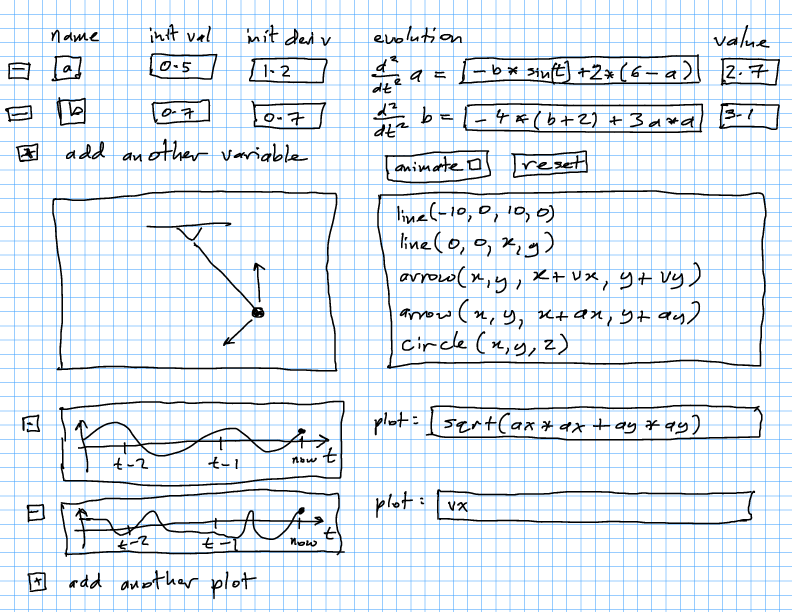 name init val init deriv evolution value
[-] a 0.5 1.2 d²/dt² a = -b* sin[t] +2*(6-a) 2.7
[-] b 0.7 0.7 d²/dt² b = -4*(b+2) + 3a*a 3.1
[*] add another variable
animate □ reset
line(-10, 0, 10, 0)
line(0, 0, x, y)
arrow(x, y, x+vx, y+vy)
arrow(x, y, x+ax, y+ay)
circle(x, y, 2)
[-] plot: sqrt(ax*ax + ay*ay)
t-2 t-1 now t
[-] plot: vx
t-2 t-1 now t
[+] add another plot